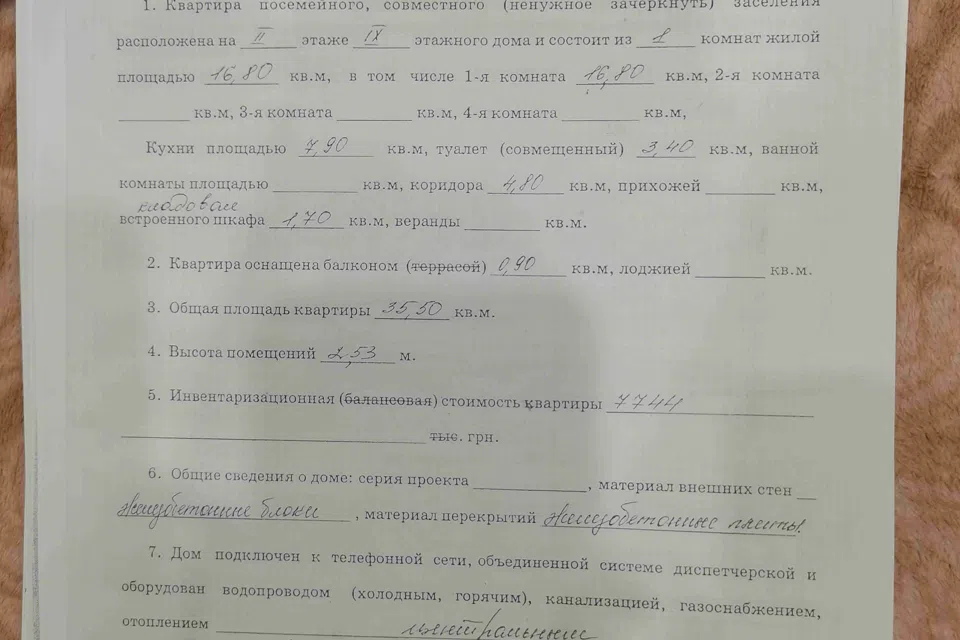 1. Квартира посемейного, совместного (ненужное зачеркнуть) заселения
расположена на II этаже IX этажного дома и состоит из 1 комнат жилой
площадью 16,80 кв.м, в том числе 1-я комната 16,80 кв.м, 2-я комната
________ кв.м, 3-я комната ________ кв.м, 4-я комната ________ кв.м,
Кухни площадью 7,90 кв.м, туалет (совмещенный) 3,40 кв.м, ванной
комнаты площадью ________ кв.м, коридора 4,80 кв.м, прихожей ________ кв.м,
кладовая
встроенного шкафа 1,70 кв.м, веранды ________ кв.м.
2. Квартира оснащена балконом (террасой) 0,90 кв.м, лоджией ________ кв.м.
3. Общая площадь квартиры 35,50 кв.м.
4. Высота помещений 2,53 м.
5. Инвентаризационная (балансовая) стоимость квартиры 7744
________ тыс. грн.
6. Общие сведения о доме: серия проекта ________, материал внешних стен __
железобетонные блоки, материал перекрытий железобетонные плиты.
7. Дом подключен к телефонной сети, объединенной системе диспетчерской и
оборудован водопроводом (холодным, горячим), канализацией, газоснабжением,
отоплением центральным